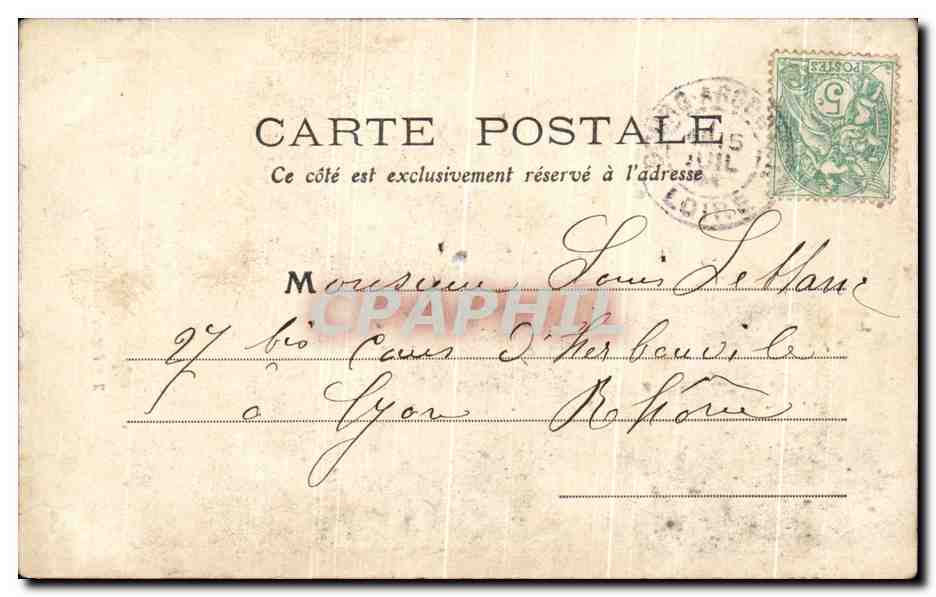 CARTE POSTALE
Ce côté est exclusivement réservé à l'adresse
POSTES
5
15
JUIL
LOIRE
Monsieur Louis Leblanc
27 bis cours d'Herbouville
a Lyon Rhône
CPAPHIL